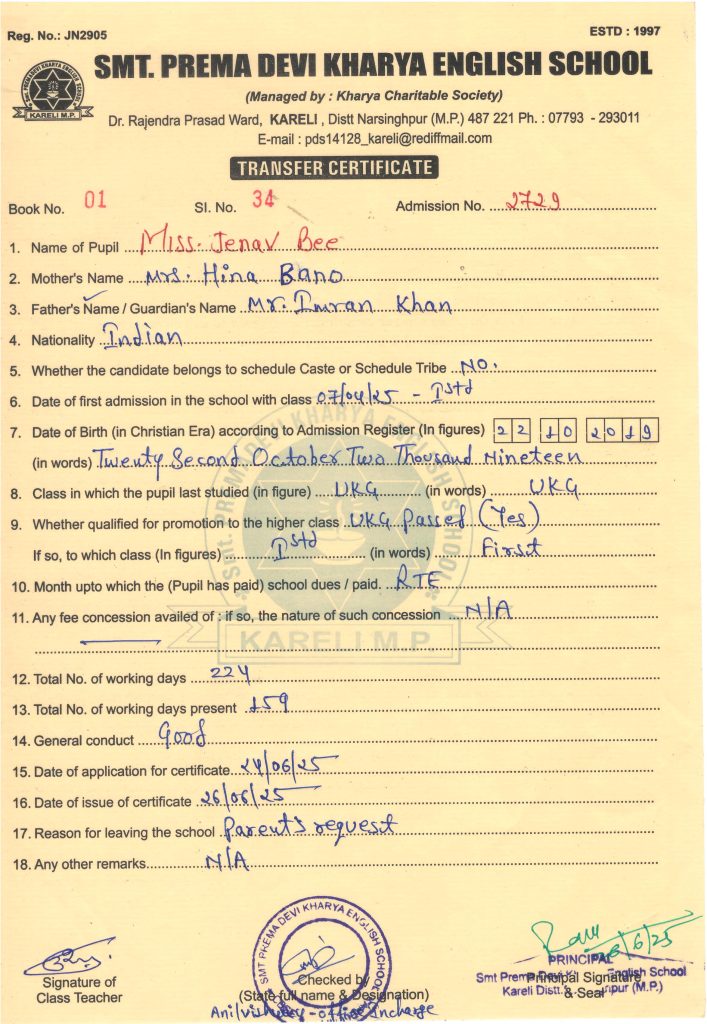 Reg. No.: JN2905
ESTD : 1997
SMT. PREMA DEVI KHARYA ENGLISH SCHOOL
(Managed by : Kharya Charitable Society)
Dr. Rajendra Prasad Ward, KARELI , Distt Narsinghpur (M.P.) 487 221 Ph. : 07793 - 293011
E-mail : pds14128_kareli@rediffmail.com
KARELI M.P.
TRANSFER CERTIFICATE
Book No. 01 Sl. No. 34 Admission No. 2729
1. Name of Pupil Miss. Jenav Bee
2. Mother's Name Mrs. Hina Bano
3. Father's Name / Guardian's Name Mr. Imran Khan
4. Nationality Indian
5. Whether the candidate belongs to schedule Caste or Schedule Tribe NO.
6. Date of first admission in the school with class 07/04/25 - Istd
7. Date of Birth (in Christian Era) according to Admission Register (In figures) 22 10 2019
(in words) Twenty Second October Two Thousand Nineteen
8. Class in which the pupil last studied (in figure) UKG (in words) UKG
9. Whether qualified for promotion to the higher class UKG Passed (Yes)
If so, to which class (In figures) Istd (in words) First
10. Month upto which the (Pupil has paid) school dues / paid. RTE
11. Any fee concession availed of : if so, the nature of such concession N/A
KARELI M.P.
12. Total No. of working days 224
13. Total No. of working days present 159
14. General conduct Good
15. Date of application for certificate 24/06/25
16. Date of issue of certificate 26/06/25
17. Reason for leaving the school Parent's request
18. Any other remarks N/A
SMT PREMA DEVI KHARYA ENGLISH SCHOOL
26/6/25
PRINCIPAL
Signature of
Class Teacher
Checked by
(State full name & Designation)
office Incharge
Principal Signature
& Seal
Smt Prema English School
Kareli Distt. (M.P.)